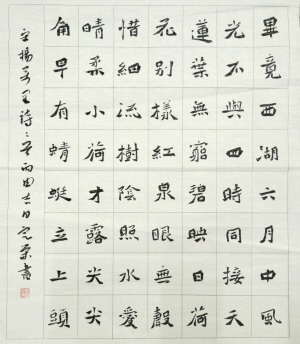 畢竟西湖六月中風
光不與四時同接天
蓮葉無窮碧映日荷
花別樣紅泉眼無聲
惜細流樹陰照水愛
晴柔小荷才露尖尖
角早有蜻蜓立上頭
宋楊万里詩二首吉日書